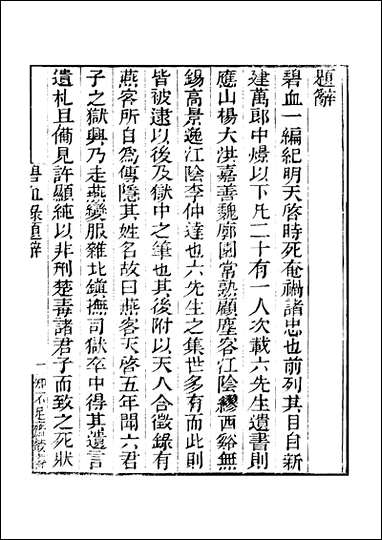 題辭
碧血一編紀明天啓時死奄禍諸忠也前列其目自新
建萬郎中燝以下凡二十有一人次載六先生遺書則
應山楊大洪嘉善魏廓園常熟顧塵客江陰繆西谿無
錫高景逸江陰李仲達也六先生之集世多有而此則
皆被逮以後及獄中之筆也其後附以天人合徵錄有
燕客所自為傳隱其姓名故曰燕客天啓五年聞六君
子之獄興乃走燕變服雜北鎮撫司獄卒中得其遺言
遺札且備見許顯純以非刑楚毒諸君子而致之死狀
碧血录題辭
一
知不足齋叢書